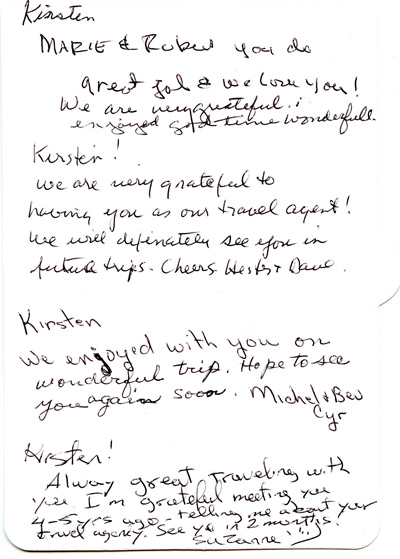 Kirsten
MARIE & Robert you do
great job & we love you!
We are very grateful!
enjoyed good time wonderfull.
Kirsten!
we are very grateful to
having you as our travel agent!
We will definately see you in
future trips. Cheers Hester & Dave.
Kirsten
We enjoyed with you on
wonderful trip. Hope to see
you again soon. Michel & Bev
Cyr
Kirsten!
Alway great traveling with
you I'm grateful meeting you
4-5 yrs ago - telling me about your
travel agency. See ya in 2 months!
Suzanne!!